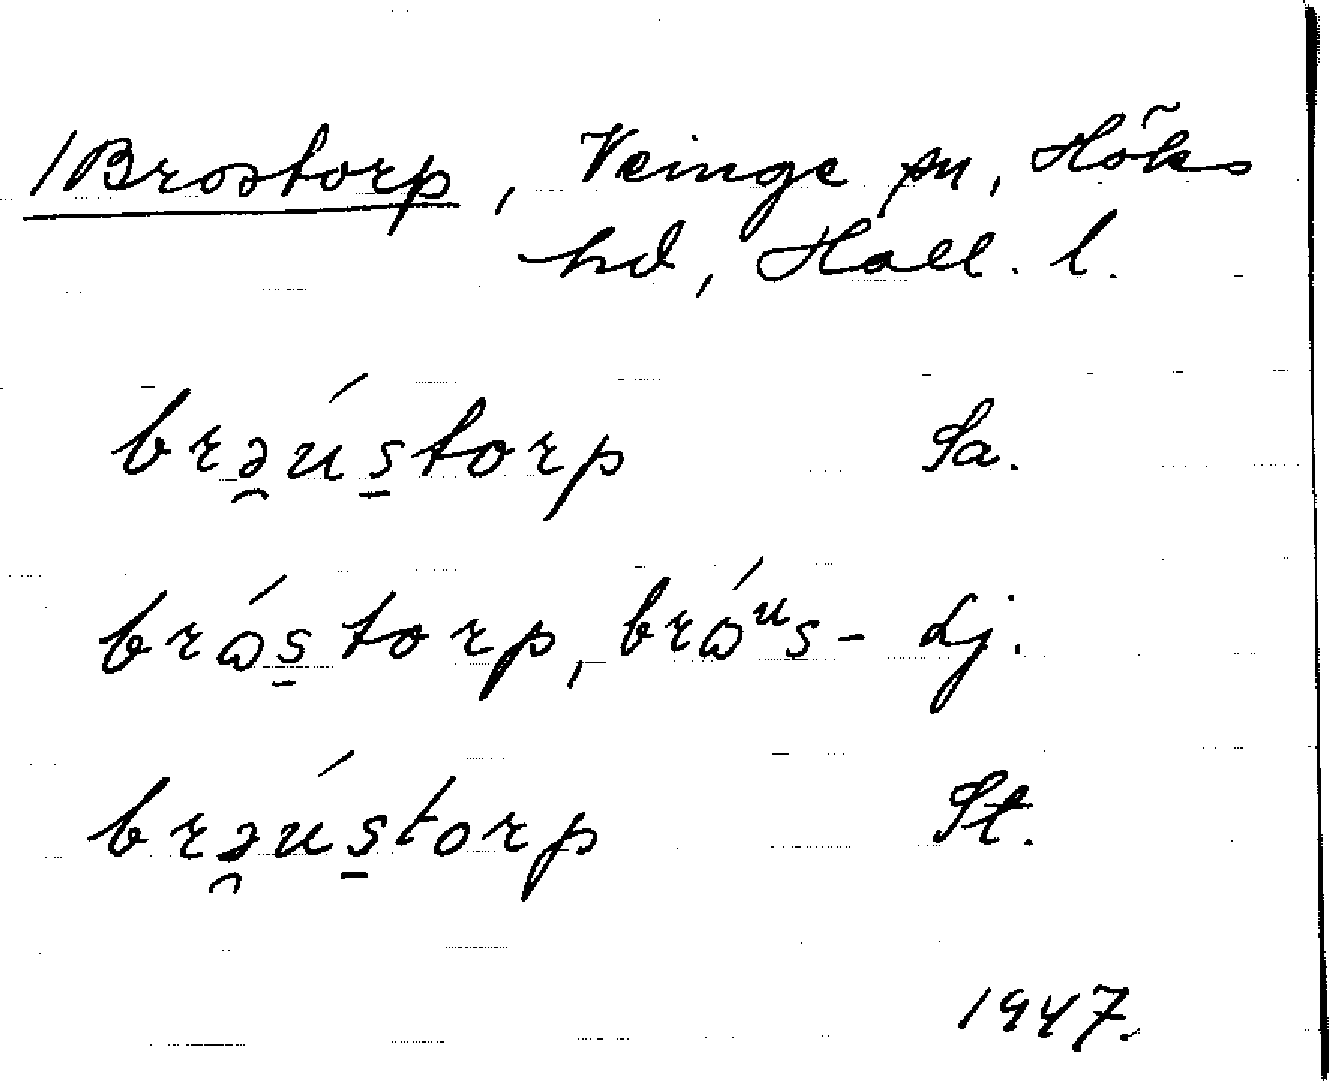 /Brostorp, Veinge sn, Höks
hd, Hall. l.
brə̯ús̠torp Sa.
brós̠torp, bróᵘs- Lj.
brə̯ús̠torp St.
1947.